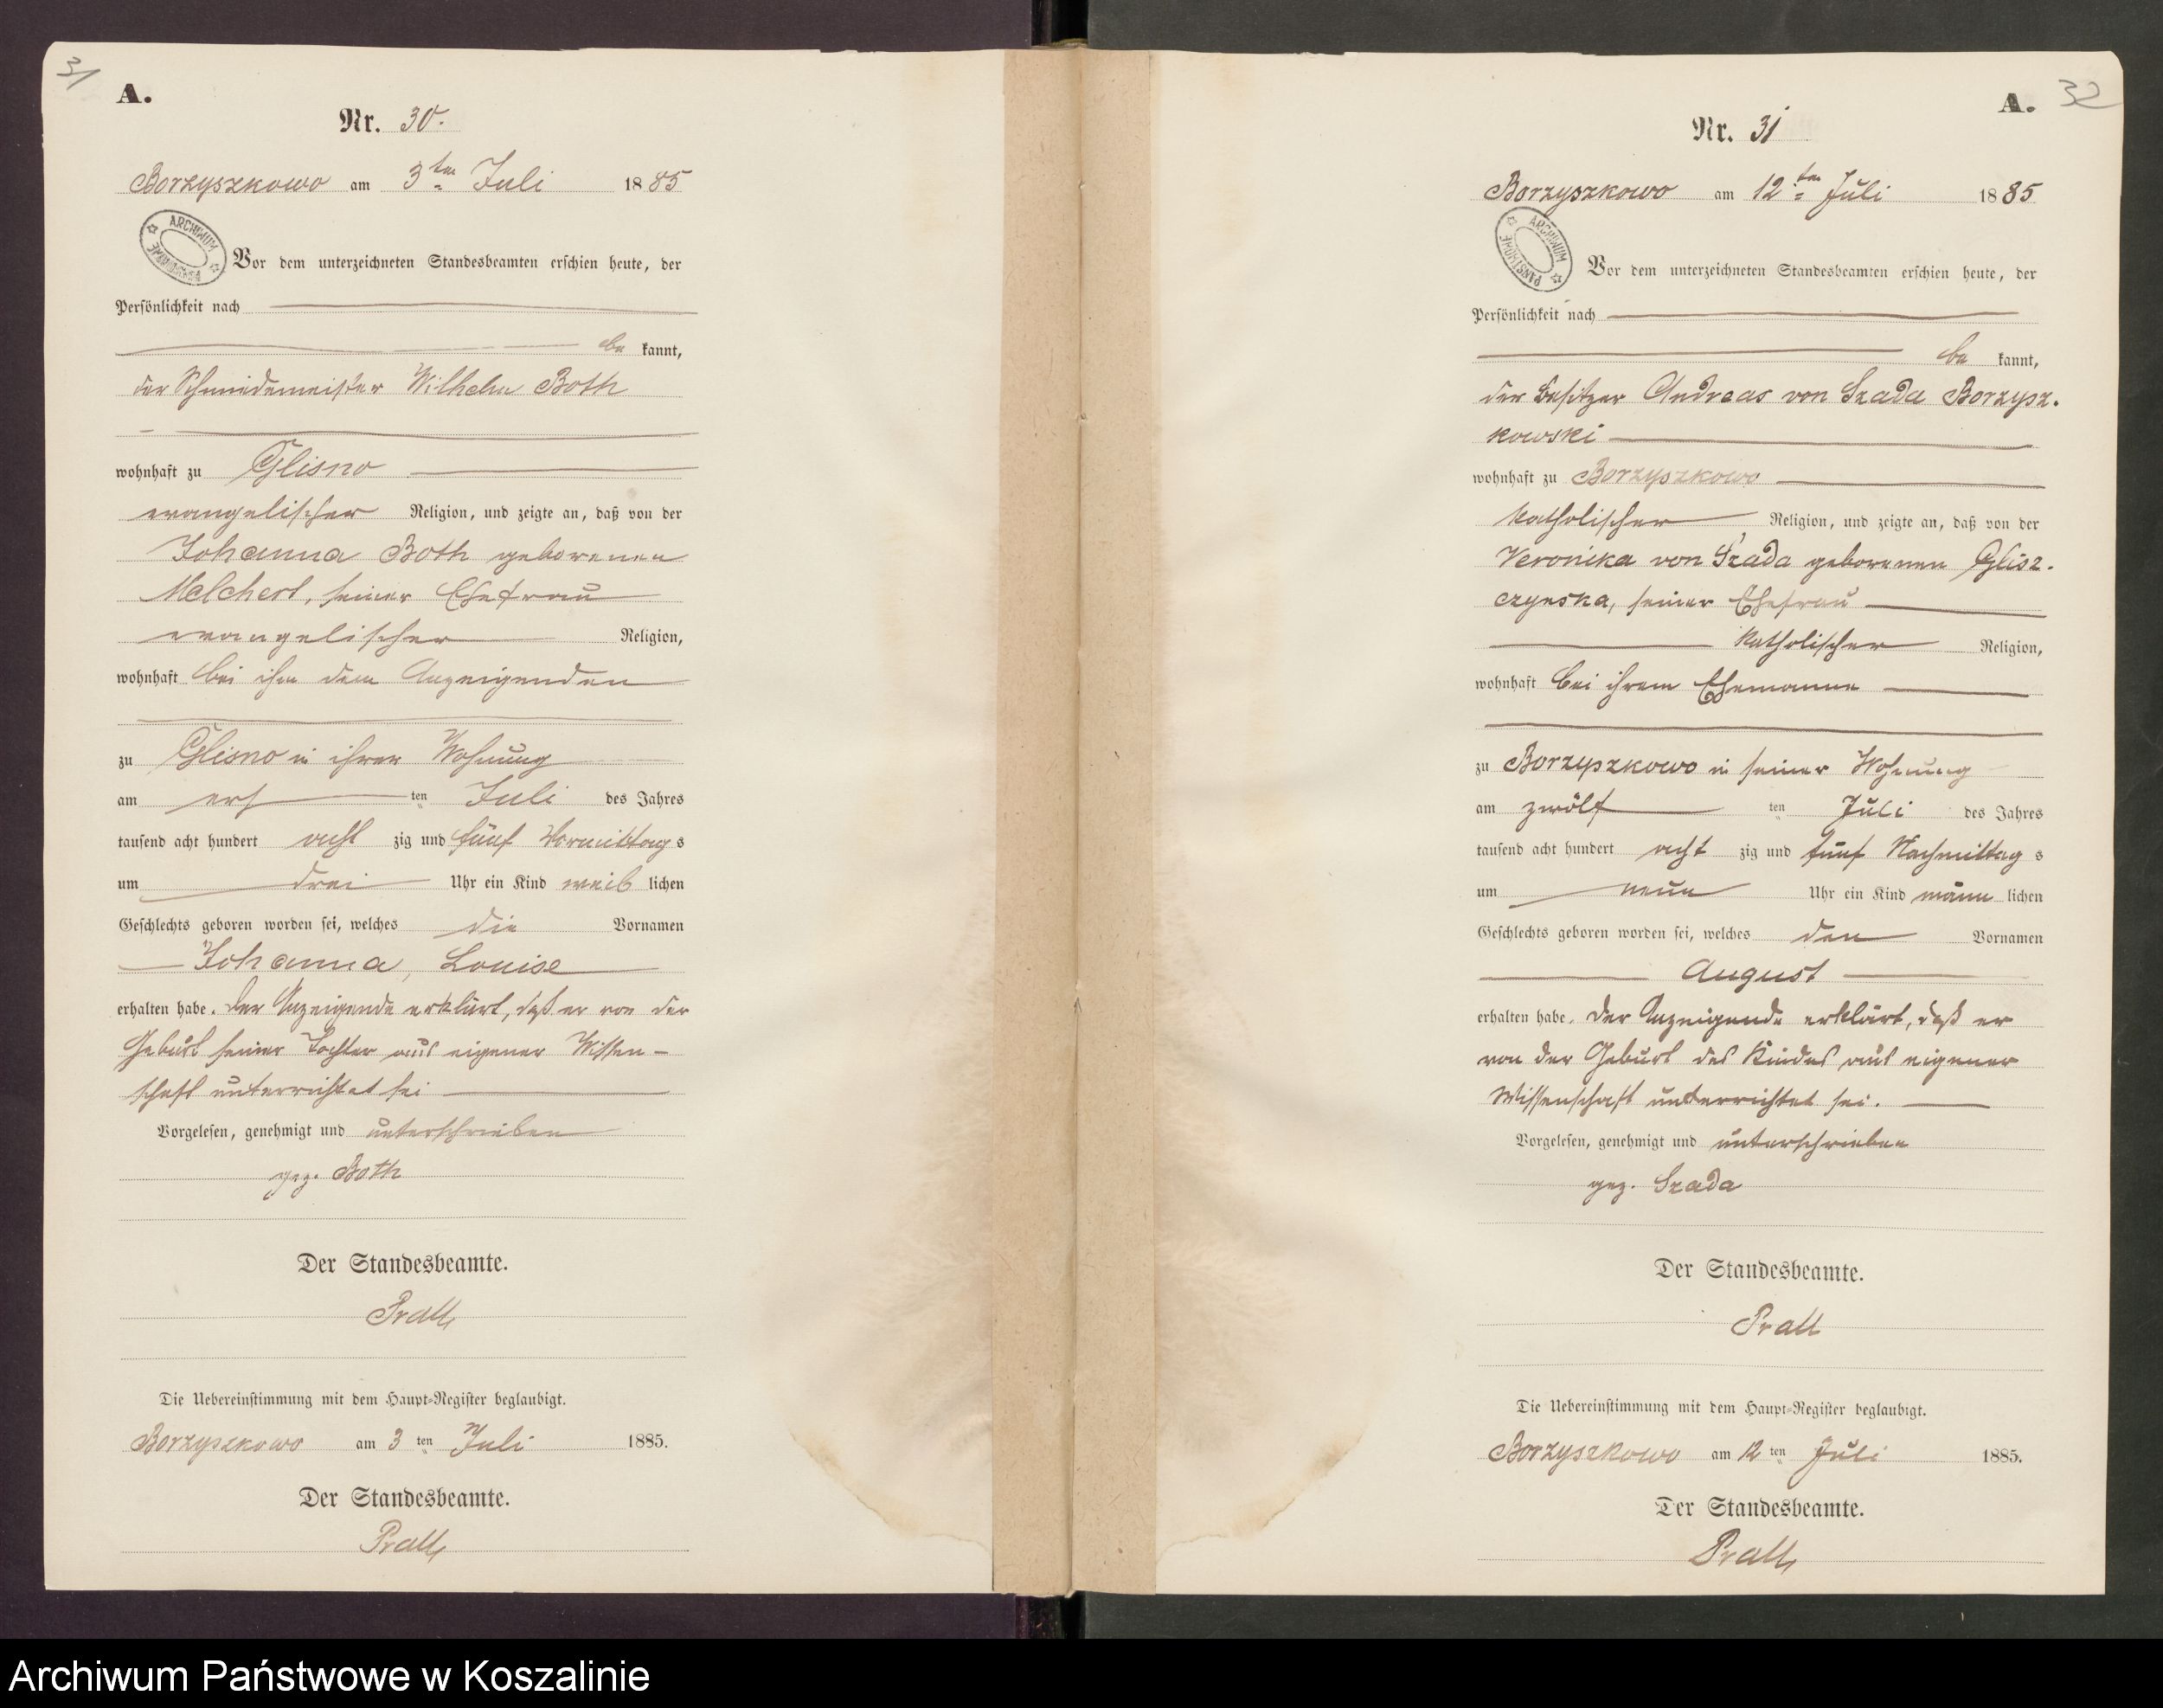 31
A.
Nr. 30.
Borzyszkowo am 3ten Juli 1885
ARCHIWUM PAŃSTWOWE
Vor dem unterzeichneten Standesbeamten erschien heute, der
Persönlichkeit nach
be kannt,
der Schmiedemeister Wilhelm Both
wohnhaft zu Glisno
evangelischer Religion, und zeigte an, daß von der
Johanna Both geborenen
Melchert, seiner Ehefrau
evangelischer Religion,
wohnhaft bei ihm dem Anzeigenden
zu Glisno in ihrer Wohnung
am ers ten Juli des Jahres
tausend acht hundert acht zig und fünf Vormittag s
um drei Uhr ein Kind weib lichen
Geschlechts geboren worden sei, welches die Vornamen
Johanna, Louise
erhalten habe. Der Anzeigende erklärt, daß er von der
Geburt seiner Tochter aus eigener Wissen-
schaft unterrichtet sei
Vorgelesen, genehmigt und unterschrieben
gez. Both
Der Standesbeamte.
Prall
Die Uebereinstimmung mit dem Haupt-Register beglaubigt.
Borzyszkowo am 3 ten Juli 1885.
Der Standesbeamte.
Prall
A. 32
Nr. 31
Borzyszkowo am 12ten Juli 1885
ARCHIWUM PAŃSTWOWE
Vor dem unterzeichneten Standesbeamten erschien heute, der
Persönlichkeit nach
be kannt,
der Besitzer Andreas von Szada Borzysz-
kowski
wohnhaft zu Borzyszkowo
katholischer Religion, und zeigte an, daß von der
Veronika von Szada geborenen Glisz-
czynska, seiner Ehefrau
katholischer Religion,
wohnhaft bei ihrem Ehemanne
zu Borzyszkowo in seiner Wohnung
am zwölf ten Juli des Jahres
tausend acht hundert acht zig und fünf Nachmittag s
um neun Uhr ein Kind männ lichen
Geschlechts geboren worden sei, welches den Vornamen
August
erhalten habe. Der Anzeigende erklärt, daß er
von der Geburt des Kindes aus eigener
Wissenschaft unterrichtet sei.
Vorgelesen, genehmigt und unterschrieben
gez. Szada
Der Standesbeamte.
Prall
Die Uebereinstimmung mit dem Haupt-Register beglaubigt.
Borzyszkowo am 12 ten Juli 1885.
Der Standesbeamte.
Prall
Archiwum Państwowe w Koszalinie